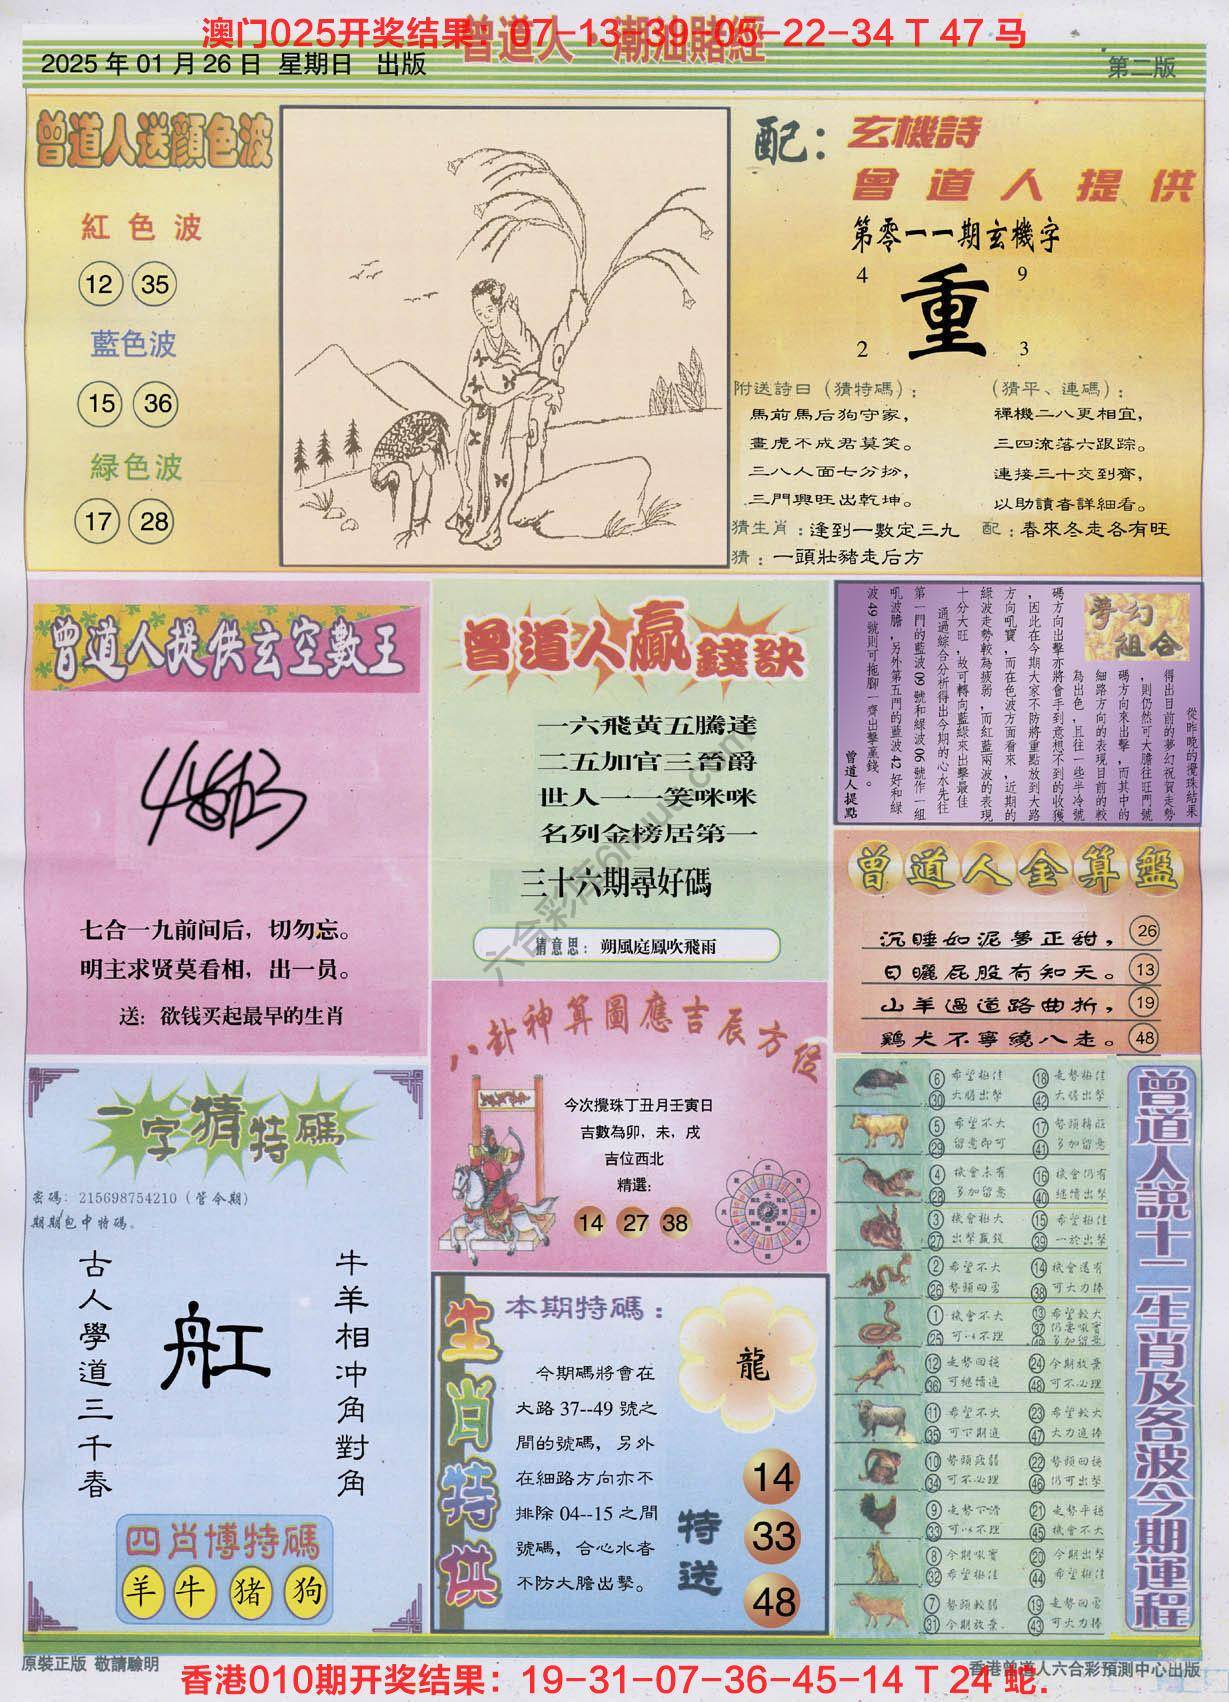 澳门025开奖结果：07-13-39-05-22-34 T 47 马
曾道人·潮汕賭經
2025 年 01 月 26 日 星期日 出版
第二版
曾道人送顏色波
紅色波
12 35
藍色波
15 36
緑色波
17 28
配：玄機詩
曾道人提供
第零一一期玄機字
4 9
重
2 3
附送詩曰（猜特碼）：
馬前馬后狗守家，
畫虎不成君莫笑。
三八人面七分扮，
三門興旺出乾坤。
（猜平、連碼）：
禪機二八更相宜，
三四流落六跟踪。
連接三十交到齊，
以助讀者詳細看。
猜生肖：逢到一數定三九
配：春來冬走各有旺
猜：一頭壯豬走后方
曾道人提供玄空數王
七合一九前间后，切勿忘。
明主求贤莫看相，出一员。
送：欲钱买起最早的生肖
曾道人贏錢訣
一六飛黄五騰達
二五加官三晉爵
世人一一笑咪咪
名列金榜居第一
三十六期尋好碼
猜意思：朔風庭鳳吹飛雨
夢幻組合
從昨晚的攪珠結果
得出目前的夢幻祝賀走勢
，則仍然可大膽往旺門號
碼方向來出擊，而其中的
細路方向的表現目前的較
為出色，且往一些半冷號
碼方向出擊亦將會手到意想不到的收獲
，因此在今期大家不防將重點放到大路
方向吼寶，而在色波方面看來，近期的
綠波走勢較為疲弱，而紅藍兩波的表現
十分大旺，故可轉向藍綠來出擊最佳
通過綜合分析得出今期的心水先往
第一門的藍波09號和綠波06號作一組
吼波膽，另外第五門的藍波42好和綠
波49號則可拖腳一齊出擊贏錢。
曾道人提點
曾道人金算盤
沉睡如泥夢正甜，26
日曬屁股有知天。13
山羊過道路曲折，19
鷄犬不寧繞八走。48
八卦神算圖應吉辰方位
今次攪珠丁丑月壬寅日
吉數為卯，未，戌
吉位西北
精選：
14 27 38
一字猜特碼
密碼：215698754210（管令期）
期期包中特碼。
古人學道三千春
舡
牛羊相冲角對角
四肖博特碼
羊 牛 猪 狗
生肖特供
本期特碼：
龍
今期碼將會在
大路 37--49 號之
間的號碼，另外
在細路方向亦不
排除 04--15 之間
號碼，合心水者
不防大膽出擊。
特送
14
33
48
曾道人説十二生肖及各波今期運程
6 希望極佳 18 走勢極佳
30 大膽出擊 42 大膽出擊
5 希望不大 17 勢頭轉旺
29 留意即可 41 多加留意
4 機會未有 16 機會仍有
28 多加留意 40 繼續出擊
3 機會極大 15 希望極佳
27 出擊贏錢 39 一於出擊
2 希望不大 14 機會還有
26 勢頭回勇 38 可大力捧
1 機會不大 13 希望較大
25 可以不理 37 仍要吼實
49 多加留意
12 走勢回穩 24 今期放棄
36 可繼續追 48 可不必理
11 希望不大 23 希望較大
35 可下期追 47 大力追捧
10 勢頭疲弱 22 勢頭回穩
34 可不必理 46 仍可出擊
9 走勢下滑 21 走勢平穩
33 可以不理 45 機會不大
8 今期吼實 20 今期出擊
32 希望極佳 44 希望極佳
7 勢頭較弱 19 走勢回勇
31 今期放棄 43 可大力捧
原裝正版 敬請驗明
香港曾道人六合彩預測中心出版
香港010期开奖结果：19-31-07-36-45-14 T 24 蛇.